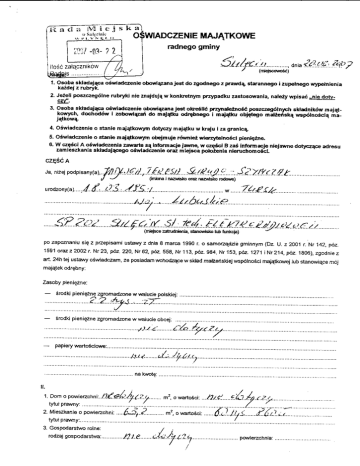 Rada Miejska
w Sulęcinie
2007 -03- 22
Ilość załączników
Podpis
OŚWIADCZENIE MAJĄTKOWE
radnego gminy
Sulęcin, dnia 20.03.2007
(miejscowość)
Uwaga:
1. Osoba składająca oświadczenie obowiązana jest do zgodnego z prawdą, starannego i zupełnego wypełnienia
każdej z rubryk.
2. Jeżeli poszczególne rubryki nie znajdują w konkretnym przypadku zastosowania, należy wpisać „nie doty-
czy".
3. Osoba składająca oświadczenie obowiązana jest określić przynależność poszczególnych składników mająt-
kowych, dochodów i zobowiązań do majątku odrębnego i majątku objętego małżeńską wspólnością ma-
jątkową.
4. Oświadczenie o stanie majątkowym dotyczy majątku w kraju i za granicą.
5. Oświadczenie o stanie majątkowym obejmuje również wierzytelności pieniężne.
6. W części A oświadczenia zawarte są informacje jawne, w części B zaś informacje niejawne dotyczące adresu
zamieszkania składającego oświadczenie oraz miejsca położenia nieruchomości.
CZĘŚĆ A
Ja, niżej podpisany(a), TERESA
(imiona i nazwisko oraz nazwisko rodowe)
urodzony(a) 18.03.1951 w TURSK
woj. Lubuskie
SP ZOZ SULĘCIN
(miejsce zatrudnienia, stanowisko lub funkcja)
po zapoznaniu się z przepisami ustawy z dnia 8 marca 1990 r. o samorządzie gminnym (Dz. U. z 2001 r. Nr 142, poz.
1591 oraz z 2002 r. Nr 23, poz. 220, Nr 62, poz. 558, Nr 113, poz. 984, Nr 153, poz. 1271 i Nr 214, poz. 1806), zgodnie z
art. 24h tej ustawy oświadczam, że posiadam wchodzące w skład małżeńskiej wspólności majątkowej lub stanowiące mój
majątek odrębny:
I.
Zasoby pieniężne:
— środki pieniężne zgromadzone w walucie polskiej:
22 tys. zł
— środki pieniężne zgromadzone w walucie obcej:
nie dotyczy
— papiery wartościowe:
nie dotyczy
na kwotę:
II.
1. Dom o powierzchni: nie dotyczy m², o wartości: nie dotyczy
tytuł prawny:
2. Mieszkanie o powierzchni: 63,2 m², o wartości: 60 tys
tytuł prawny:
3. Gospodarstwo rolne:
rodzaj gospodarstwa: nie dotyczy powierzchnia: